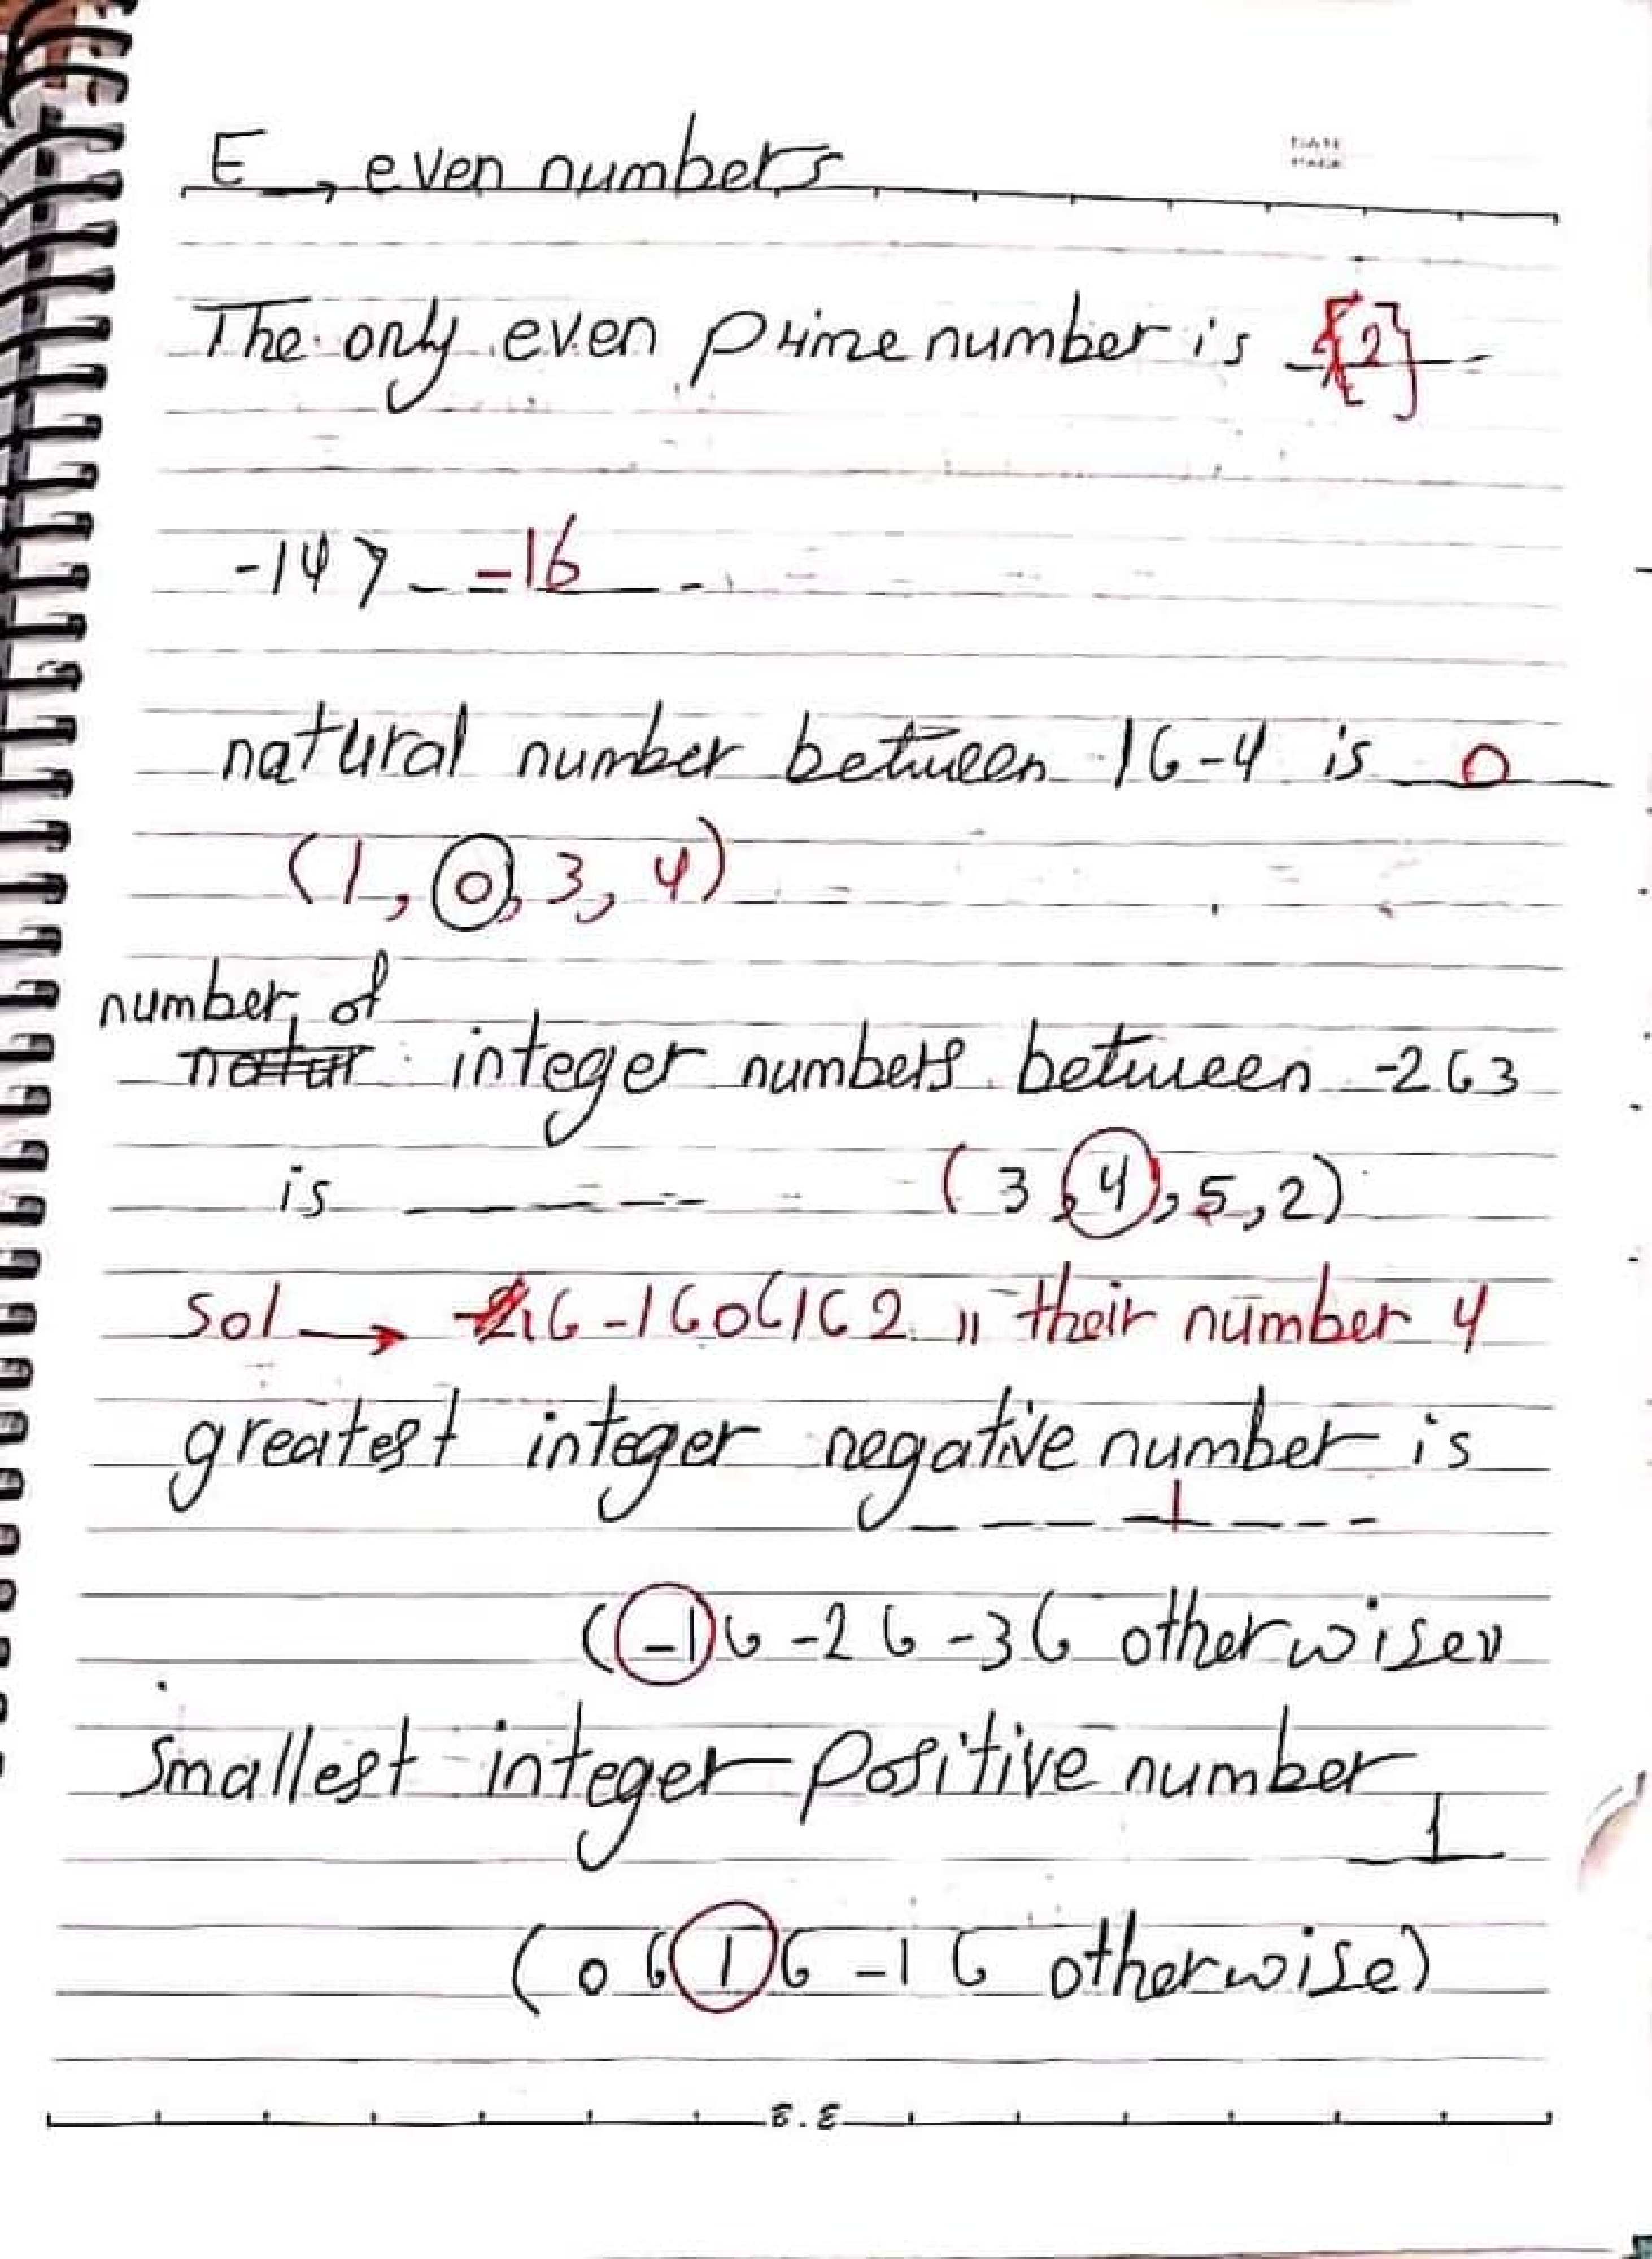 E → even numbers
DATE
PAGE
The only even prime number is {2}
-14 > -16
natural number between 1 6 -4 is 0
(1, 0, 3, 4)
number of
integer numbers between -2 6 3
is ------ (3, 4, 5, 2)
sol → 6 -1 6 0 6 1 6 2 11 their number 4
greatest integer negative number is
-1
(-1 6 -2 6 -3 6 otherwise)
Smallest integer positive number
1
(0 6 1 6 -1 6 otherwise)